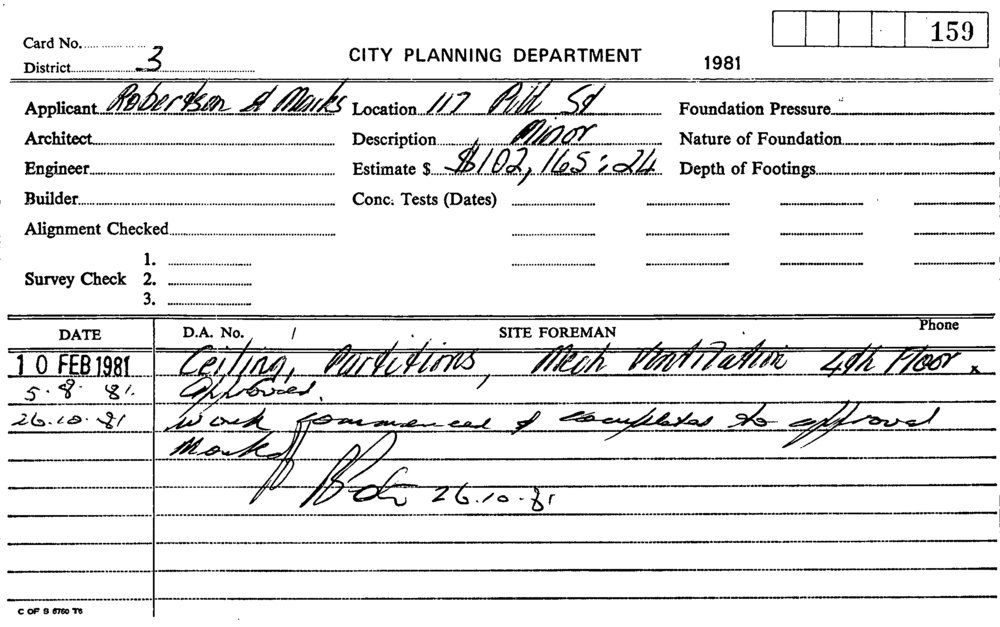 159
Card No.
District 3
CITY PLANNING DEPARTMENT
1981
Applicant Robertson & Marks Location 117 Pitt St Foundation Pressure
Architect Description Minor Nature of Foundation
Engineer Estimate $ $102,165:24 Depth of Footings
Builder Conc. Tests (Dates)
Alignment Checked
1.
Survey Check 2.
3.
DATE D.A. No. / SITE FOREMAN Phone
10 FEB 1981 Ceiling, Partitions, Mech Ventilation 4th Floor
5.8.81. Approved.
26.10.81 Work commenced & completed to approved
26.10.81
C OF S 6760 T6